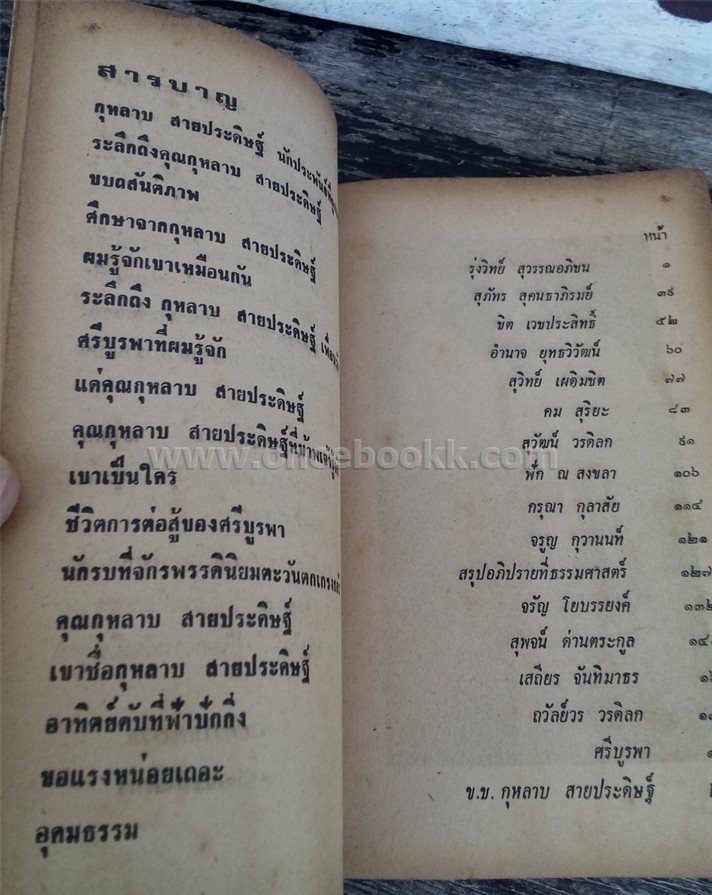 สารบาญ
กุหลาบ สายประดิษฐ์ นักประพันธ์
ระลึกถึงคุณกุหลาบ สายประดิษฐ์
ขบถสันติภาพ
ศึกษาจากกุหลาบ สายประดิษฐ์
ผมรู้จักเขาเหมือนกัน
ระลึกถึง กุหลาบ สายประดิษฐ์
ศรีบูรพาที่ผมรู้จัก
แด่คุณกุหลาบ สายประดิษฐ์
คุณกุหลาบ สายประดิษฐ์ที่ข้าพเจ้า
เขาเป็นใคร
ชีวิตการต่อสู้ของศรีบูรพา
นักรบที่จักรพรรดินิยมตะวันตกเกรง
คุณกุหลาบ สายประดิษฐ์
เขาชื่อกุหลาบ สายประดิษฐ์
อาทิตย์ดับที่ฟ้าปักกิ่ง
ขอแรงหน่อยเถอะ
อุดมธรรม
หน้า
รุ่งวิทย์ สุวรรณอภิชน ๑
สุภัทร สุคนธาภิรมย์ ๓๙
ขิต เวชประสิทธิ์ ๕๒
อำนาจ ยุทธวิวัฒน์ ๖๐
สุวิทย์ เผดิมชิต ๗๗
คม สุริยะ ๘๓
สุวัฒน์ วรดิลก ๙๑
ฟัก ณ สงขลา ๑๐๖
กรุณา กุลาสัย ๑๑๔
จรูญ กุวานนท์ ๑๒๑
สรุปอภิปรายที่ธรรมศาสตร์ ๑๒๗
จรัญ โยบรรยงค์ ๑๓๒
สุพจน์ ด่านตระกูล
เสถียร จันทิมาธร
ถวัลย์วร วรดิลก
ศรีบูรพา
ข.ข. กุหลาบ สายประดิษฐ์
www.oncebookk.com